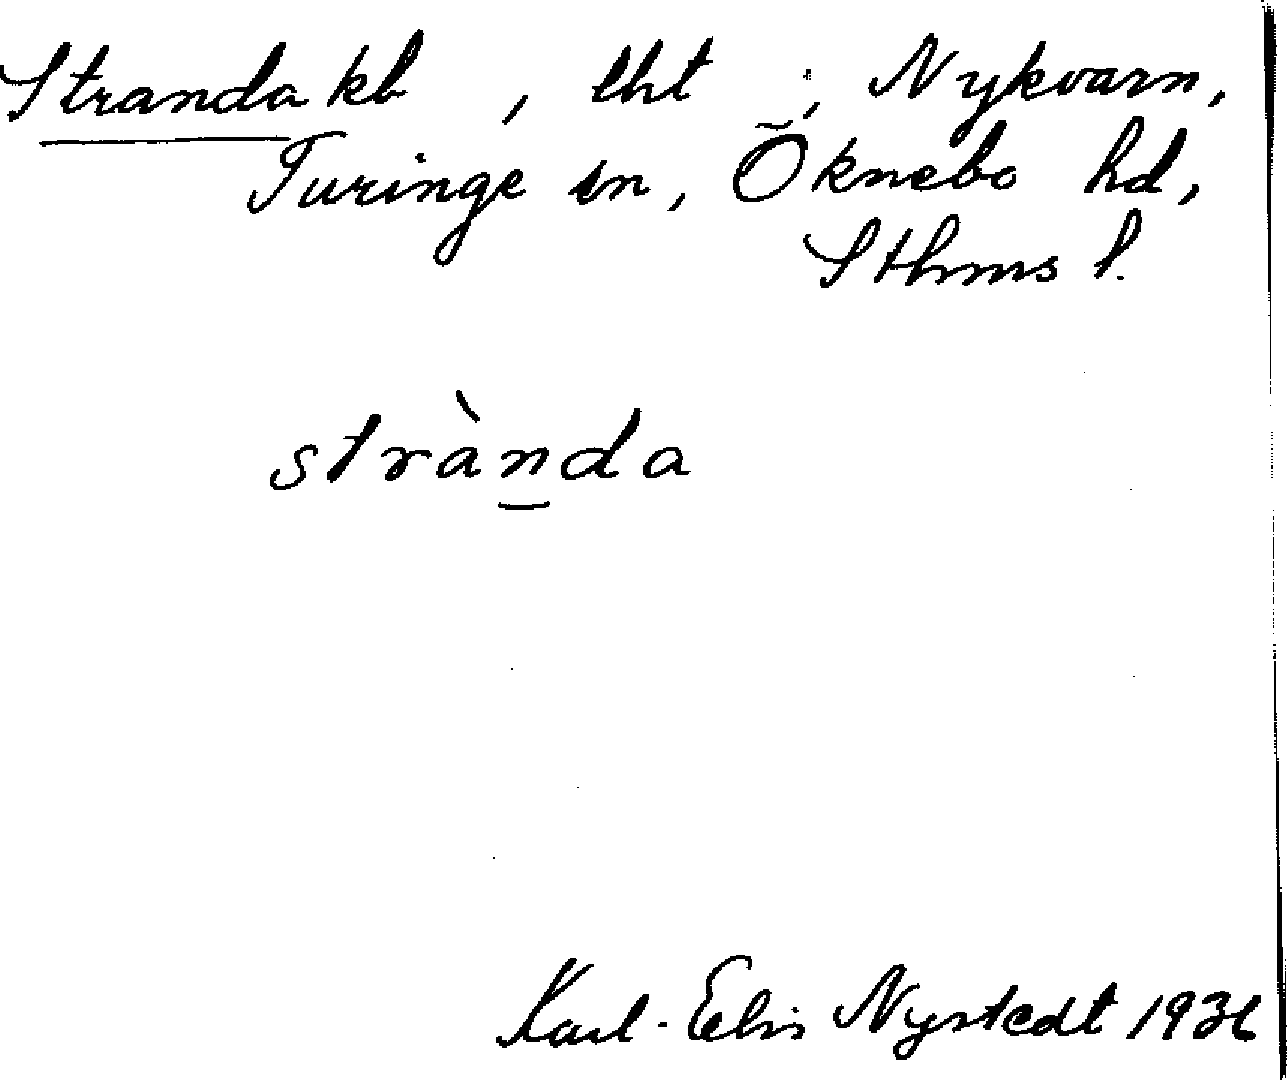 Stranda kb, lht i Nykvarn,
Turinge sn, Öknebo hd,
Sthms l.
strànda
Karl-Elis Nystedt 1936